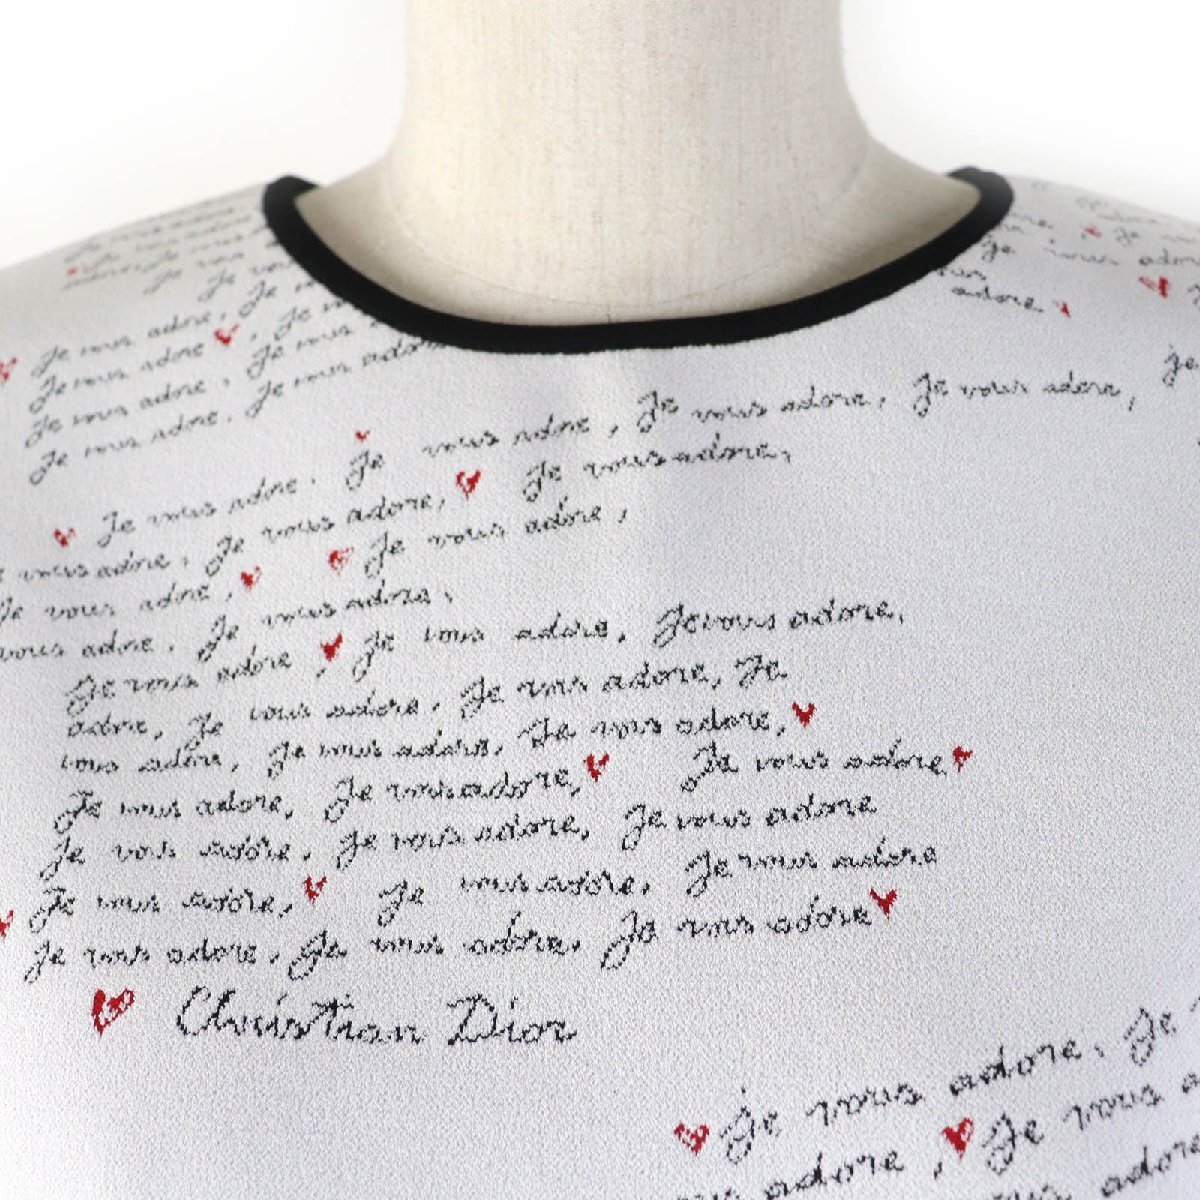 Je vous adore, Je vous
Je vous adore, Je
Je vous adore, Je vous
Je vous adore, Je vous adore
Je vous adore, Je vous adore
vous adore.
Je vous adore. Je vous adore, Je vous adore, Je vous adore, je
vous adore, Je vous adore, Je vous adore,
Je vous adore, Je vous adore,
vous adore, Je vous adore,
Je vous adore, Je vous adore, Je vous adore,
adore, Je vous adore, Je vous adore, Je
vous adore, Je vous adore, Je vous adore,
Je vous adore, Je vous adore, Je vous adore
Je vous adore, Je vous adore, Je vous adore
Je vous adore, Je vous adore, Je vous adore
Je vous adore, Je vous adore, Je vous adore
Christian Dior
Je vous adore, Je
adore, Je vous
adore